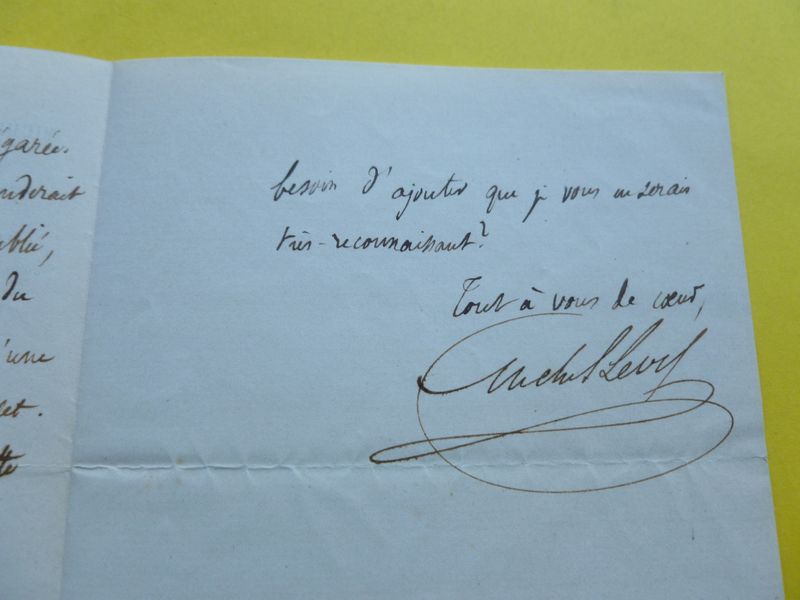 égarée.
nderait
ublié,
du
d'une
et.
tte
besoin d'ajouter que je vous en serais
très-reconnaissant?
Tout à vous de cœur,
Michel Lévy